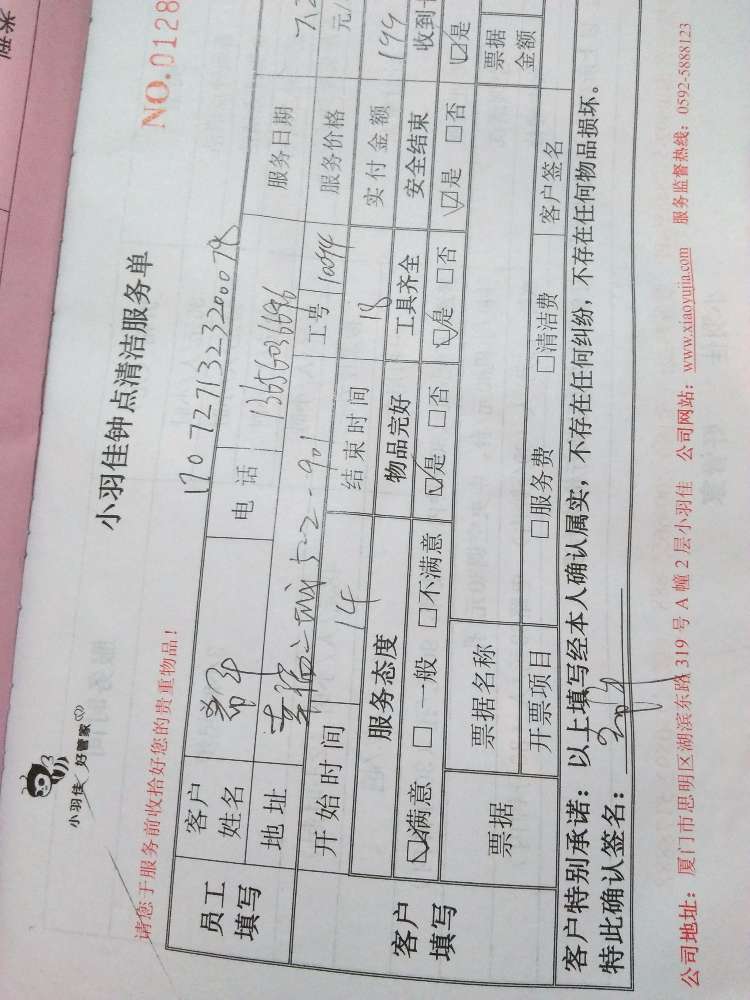 小羽佳 好管家
小羽佳钟点清洁服务单
NO.0128
请您于服务前收拾好您的贵重物品!
员工填写
客户姓名
电话 13656036696
服务日期
地址 5-2-901
工号
服务价格
元/
客户填写
开始时间 14 结束时间 18 实付金额 199
服务态度 物品完好 工具齐全 安全结束 收到
☑满意 □一般 □不满意 ☑是 □否 ☑是 □否 ☑是 □否 ☑是
票据 票据名称 票据金额
开票项目 □服务费 □清洁费 客户签名
客户特别承诺:以上填写经本人确认属实,不存在任何纠纷,不存在任何物品损坏。
特此确认签名:
公司地址:厦门市思明区湖滨东路 319 号 A 幢 2 层小羽佳 公司网站:www.xiaoyujia.com 服务监督热线:0592-5888123